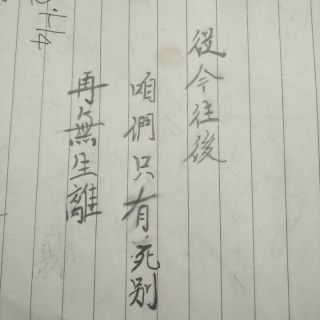 從今往後
咱們只有死别
再無生離